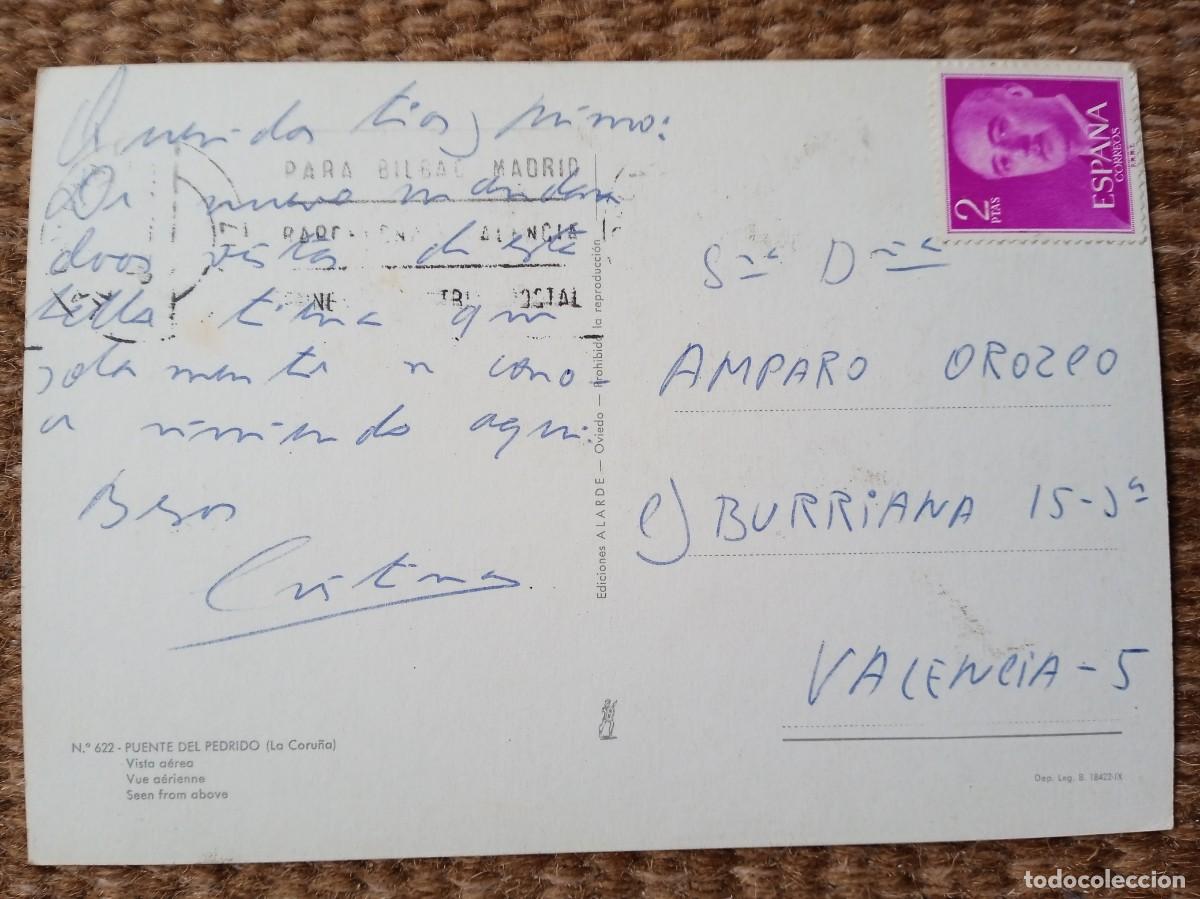 Queridos tios y primo:
De nuevo mandan
doos vista de esta
bella tierra que
solamente se cono-
ce viniendo aqui.
Besos
Cristina
PARA BILBAO MADRID
BARCELONA VALENCIA
POSTAL
ESPAÑA
CORREOS
2
PTAS
F.N.M.T.
Sra Dña
AMPARO OROZCO
C) BURRIANA 15-3ª
VALENCIA-5
Ediciones ALARDE — Oviedo — Prohibida la reproducción
N.º 622 - PUENTE DEL PEDRIDO (La Coruña)
Vista aérea
Vue aérienne
Seen from above
Dep. Leg. B. 18422-IX
todocoleccion